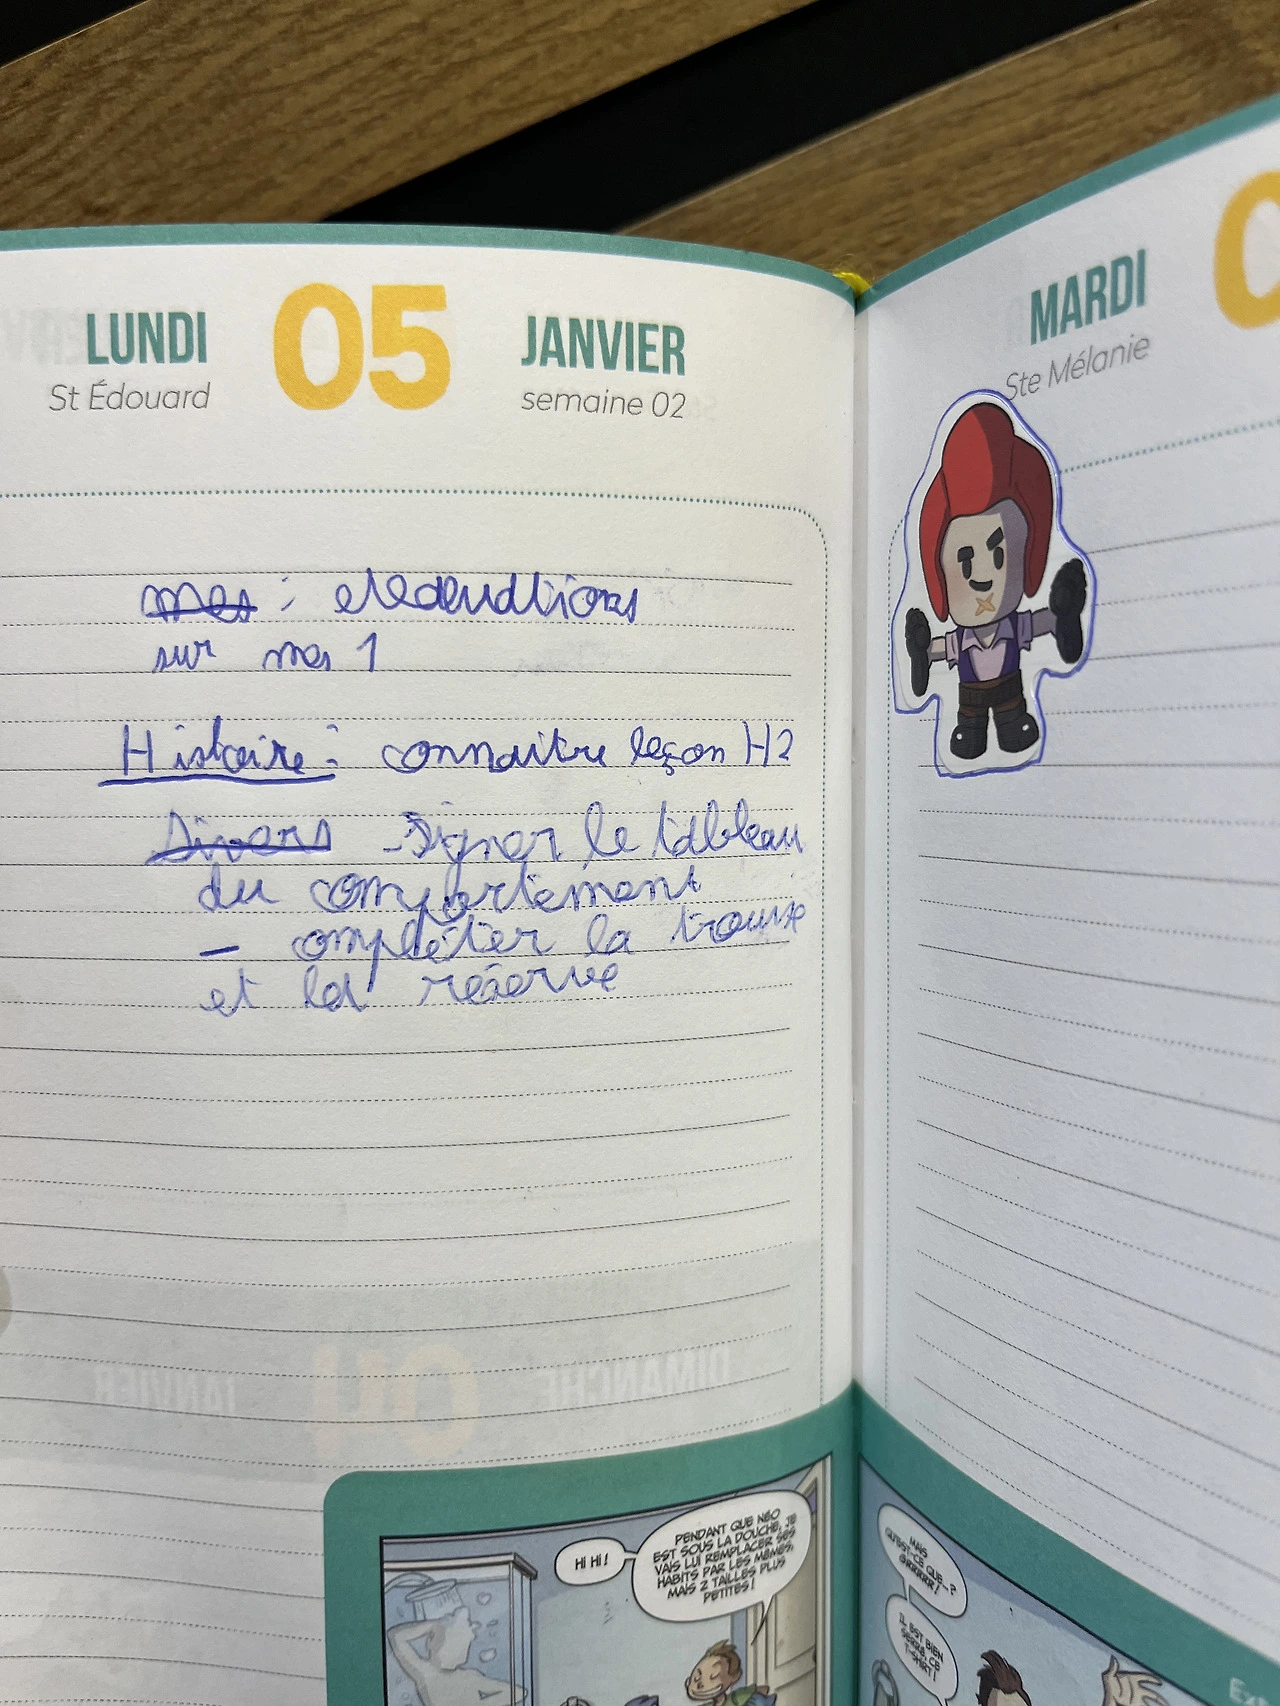 LUNDI 05 JANVIER
St Édouard semaine 02
mes :
sur mes 1
Histoire : connaitre leçon H2
Divers - signer le tableau
du comportement
- compléter la trousse
et la réserve
HI HI !
PENDANT QUE NÉO
EST SOUS LA DOUCHE, JE
VAIS LUI REMPLACER SES
HABITS PAR LES MÊMES,
MAIS 2 TAILLES PLUS
PETITES !
MARDI 0
Ste Mélanie
MAIS
QU'EST CE QUE...?
GRRRRR!
IL EST BIEN
SERRÉ, CE
T-SHIRT !